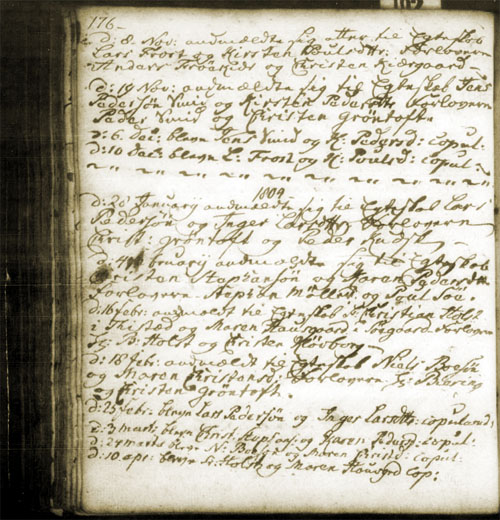 176.
d: 8 Nov: anmældte sig atter til Egteskab
Lars Frost og Kirsten Poulsdtr: Forlovere
Anders og Christen Kiergaard
d: 19 Nov: anmældte sig til Egteskab Jens
Pedersøn Smid og Kirsten Pedersdtr Forlovere
Peder Smid og Christen Grøntoft
d: 6 Dec: blevne Jens Smid og K: Pedersd: copul:
d: 10 Dec: blevne L: Frost og K: Poulsd: copul:
1809
d: 20 January anmældte sig til Egteskab Lars
Pedersøn og Inger Larsdtr Forlovere
Christ: Grøntoft og Peder
d: 4 February anmældte sig til Egteskab
Christen Stephansøn og Maren Pedersdtr
Forlovere Stephan Møller og Poul
d: 16 Febr: anmeldt til Egteskab Hr: Christian Holst
i Thisted og Maren Hausgaard i Forlovere
Hr: B: Holst og Christen
d: 18 Febr: anmeldt til Egteskab Niels
og Maren Christensd: Forlovere
og Christen Grøntoft.
d: 25 Febr: blevne Lars Pedersøn og Inger Larsdtr: copulered
d: 3 marts blevne Christ: Stephans: og Maren Peders: copul:
d: 24 marts blevne N: og Maren Christ: copul:
d: 10 apr: blevne Hr: Holst og Maren Hausgrd cop: